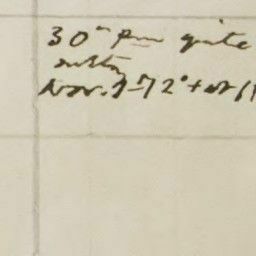 30° pm quite
sultry
Nov. 9-72° + at 11